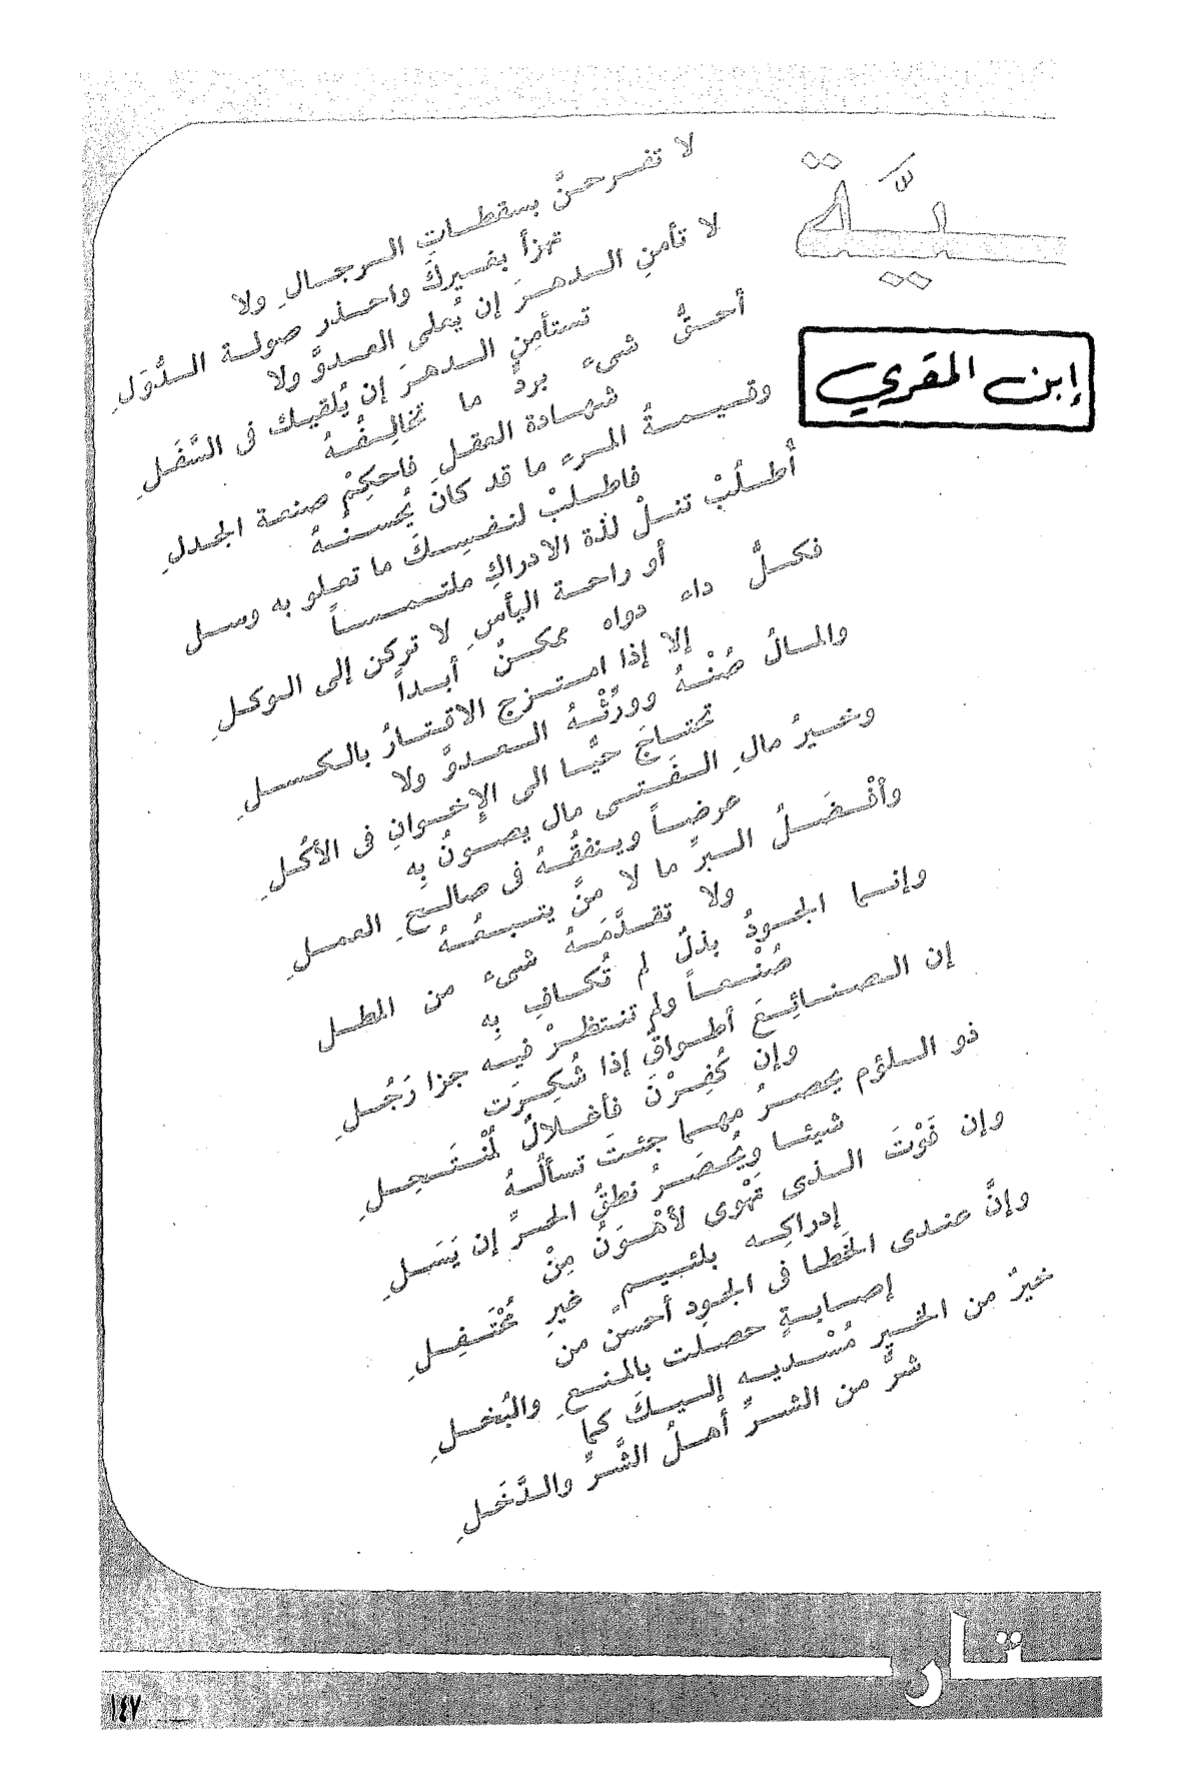 ـيَّة
إبن المقري
لا تفـرحنَّ بسقطـاتِ الـرجـالِ ولا
تهزأ بغـيركَ واحـذر صولـة الـدُّوَلِ
لا تأمنِ الـدهـرَ إن يُعلى العـدوَّ ولا
تستأمِنِ الـدهرَ إن يُلقيـك فى السَّفَـلِ
أحـقُّ شىءٍ بردٍّ ما تخالِـفُـهُ
شهـادة العقـلِ فاحكِمْ صنعة الجـدلِ
وقـيمـةُ المـرءِ ما قد كانَ يُحسنـهُ
فاطـلبْ لنـفـسِـكَ ما تعـلو به وسـل
أُطـلُبْ تنـلْ لذة الادراكِ ملتـمـسـاً
أو راحـة اليأسِ لا تركن إلى الـوكـلِ
فكـلُّ داء دواه ممكـنٌ أبـداً
إلا إذا امـتـزج الاقـتـارُ بالـكسـلِ
والمـالُ صُنْـهُ وورِّثْـهُ الـعـدوَّ ولا
تحتـاجَ حيًّـا الى الإخـوانِ فى الأكُـلِ
وخـيرُ مالِ الـفَـتـى مال يصـونُ بِه
عرضـاً وينفقُـهُ فى صالـحِ العمـلِ
وأفْـضَـلُ الـبر ما لا منَّ يتـبـعُـهُ
ولا تقـدَّمَـهُ شىء من المطـل
وإنـما الجـودُ بذلٌ لم تُكـافِ بِه
صُنْـعـاً ولم تنـتظـرْ فيـه جزا رَجُـلِ
إن الـصنـائـعَ أطـواقٌ إذا شُكِـرَت
وإن كُفِـرْنَ فأغـلالٌ لمُنْـتَـحِـلِ
ذو الـلؤم يحصـرُ مهـما جئتَ تسألُـهُ
شيئـا ويُحْصَـرُ نطقُ الحـرِّ إن يَسَـلِ
وإن فَوْتَ الـذى تَهْوى لأهْـوَنُ مِنْ
إدراكِـه بلئـيـمٍ غيرِ مُحْتَـفِـلِ
وإنَّ عنـدى الخَطـا فى الجودِ أحسن من
إصـابـةٍ حصـلت بالمنـعِ والبُخـلِ
خيرٌ من الخـيرِ مُسْـديـه إلـيـكَ كما
شرٌّ من الشـرِّ أهـلُ الشَّـرِّ والـدَّخَـلِ
ـتـار
١٤٧